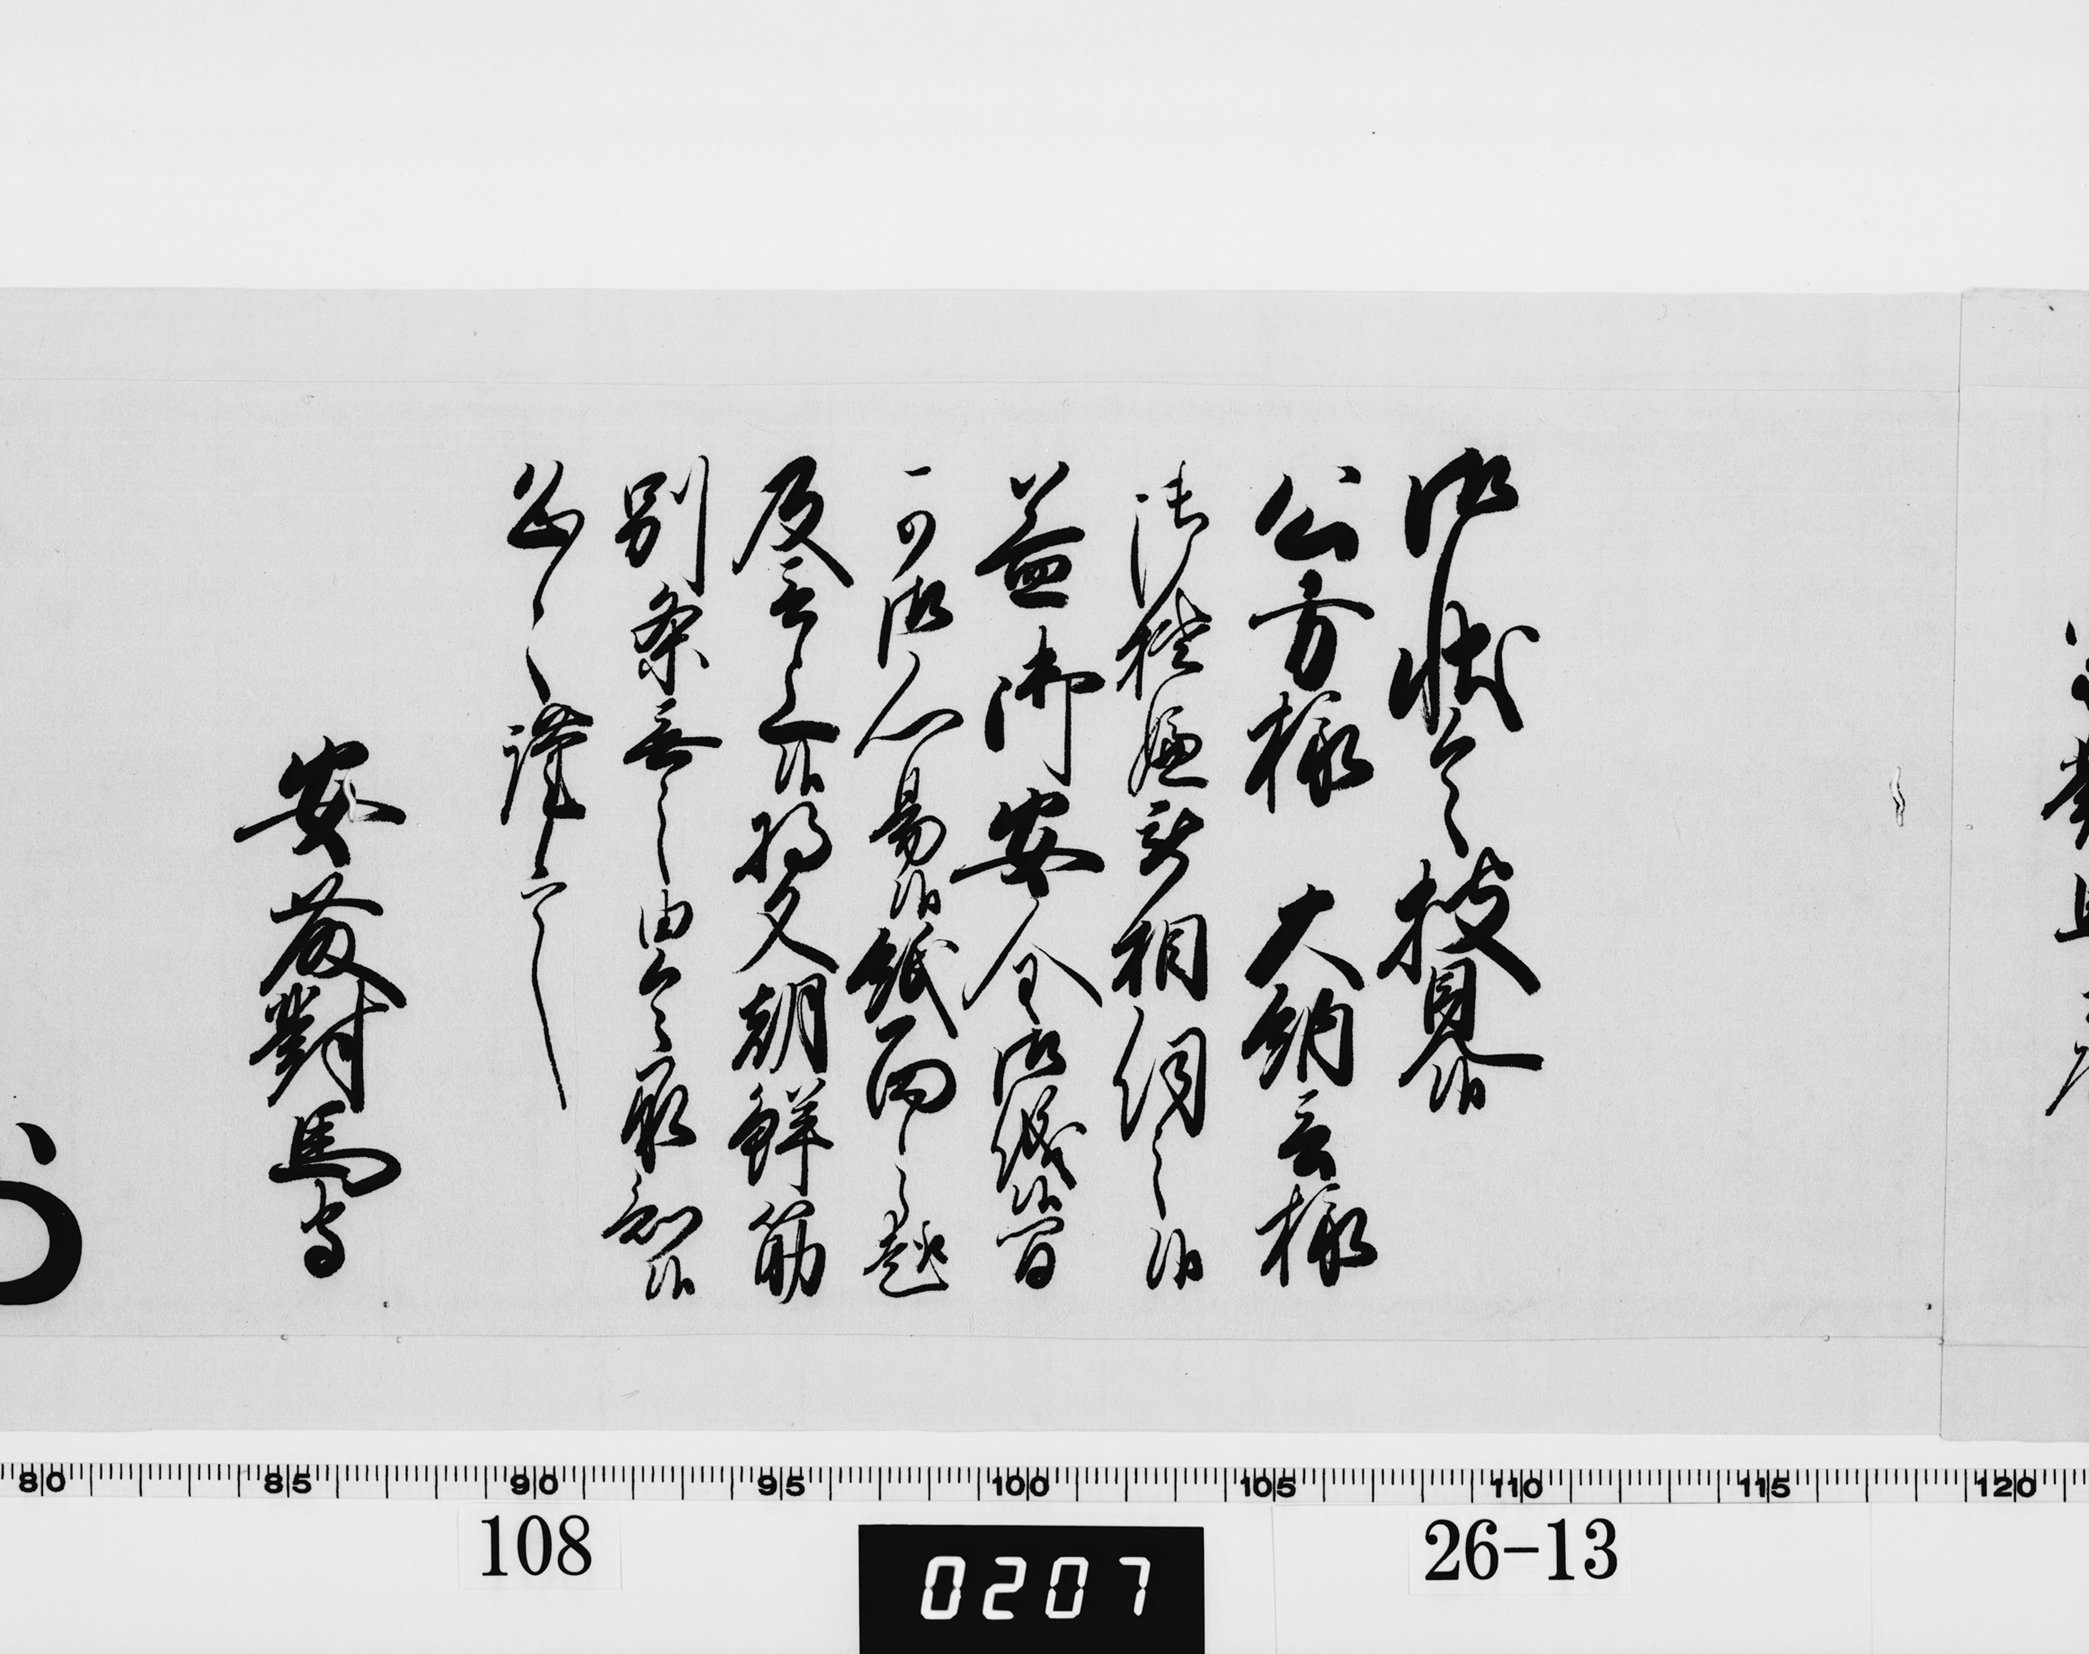 御状令披見候
公方様 大納言様
御機嫌被相伺之候
益御安全御儀候間
可御心易候紙面之趣
及言上候将又朝鮮筋
別条無之由令承知候
恐々謹言
安藤對馬守
80 85 90 95 100 105 110 115 120
108
0207
26-13